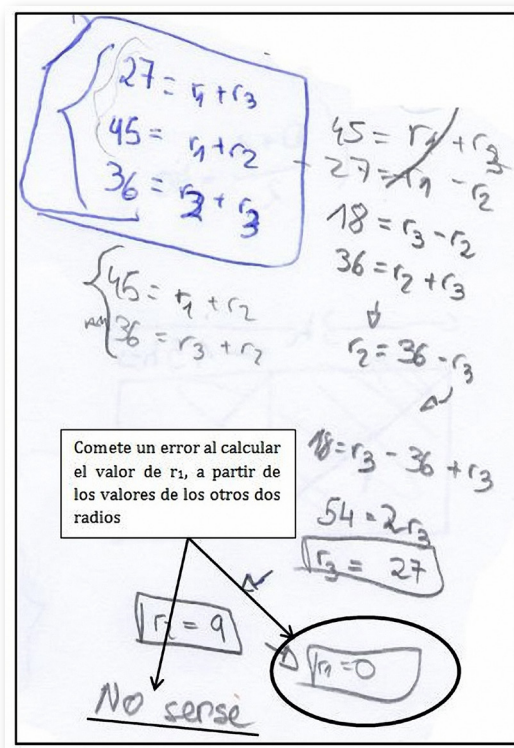 27 = r₁ + r₃
45 = r₁ + r₂
36 = r₂ + r₃
45 = r₁ + r₂
36 = r₃ + r₂
45 = r₁ + r₃
27 = r₁ - r₂
18 = r₃ - r₂
36 = r₂ + r₃
r₂ = 36 - r₃
18 = r₃ - 36 + r₃
54 = 2r₃
r₃ = 27
Comete un error al calcular
el valor de r₁, a partir de
los valores de los otros dos
radios
r₂ = 9
r₁ = 0
No sense